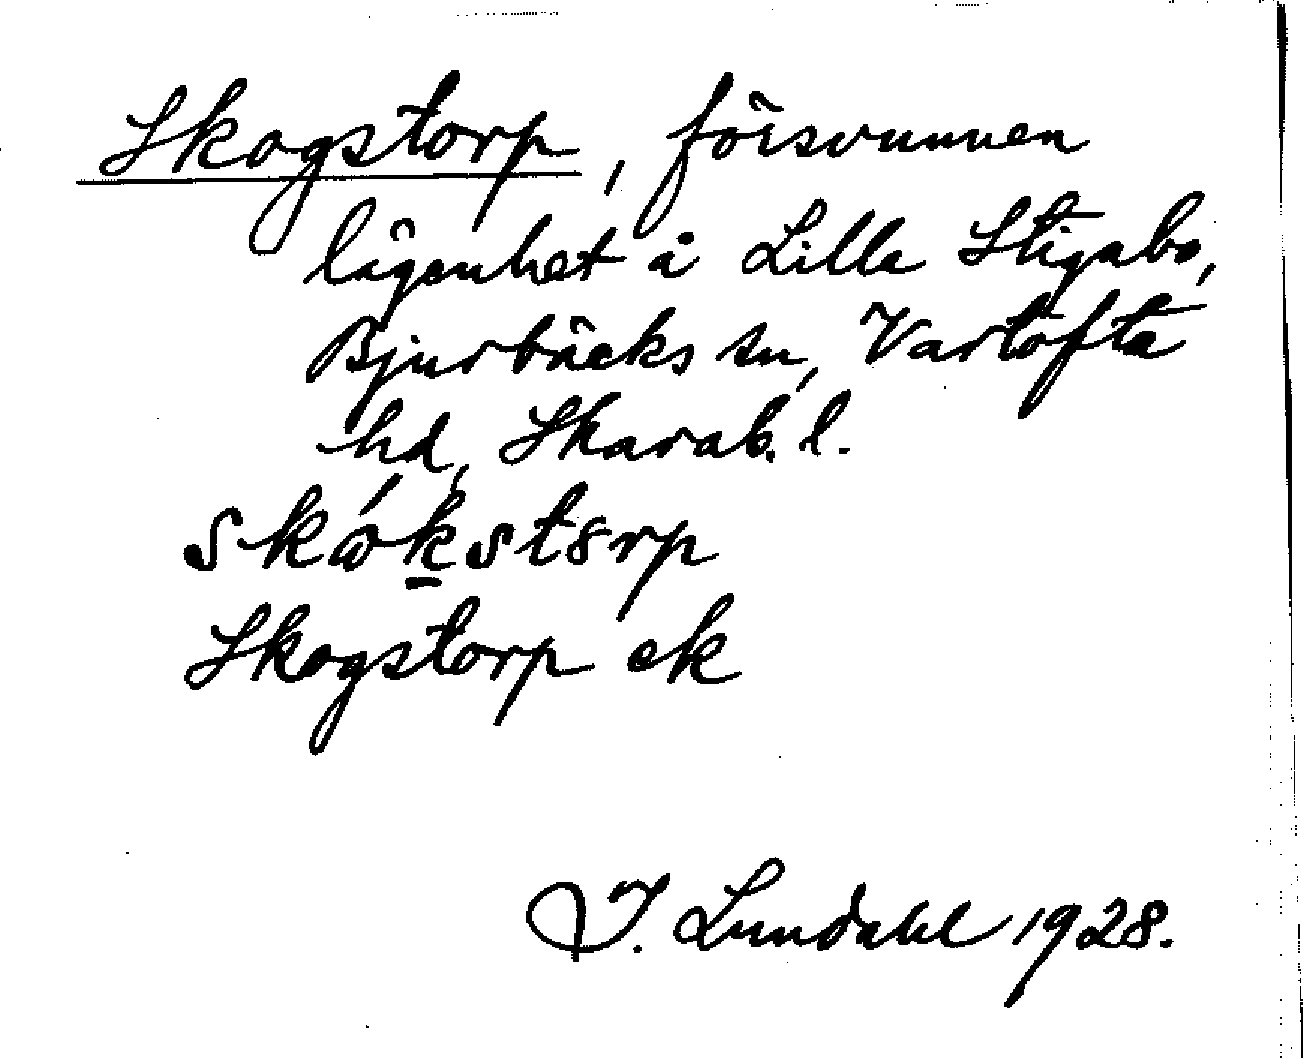 Skogstorp, försvunnen
lägenhet å Lilla Stigabo,
Bjurbäcks sn, Vartofta
hd, Skarab. l.
skó̱kstȣrp
Skogstorp ek
I. Lundahl 1928.